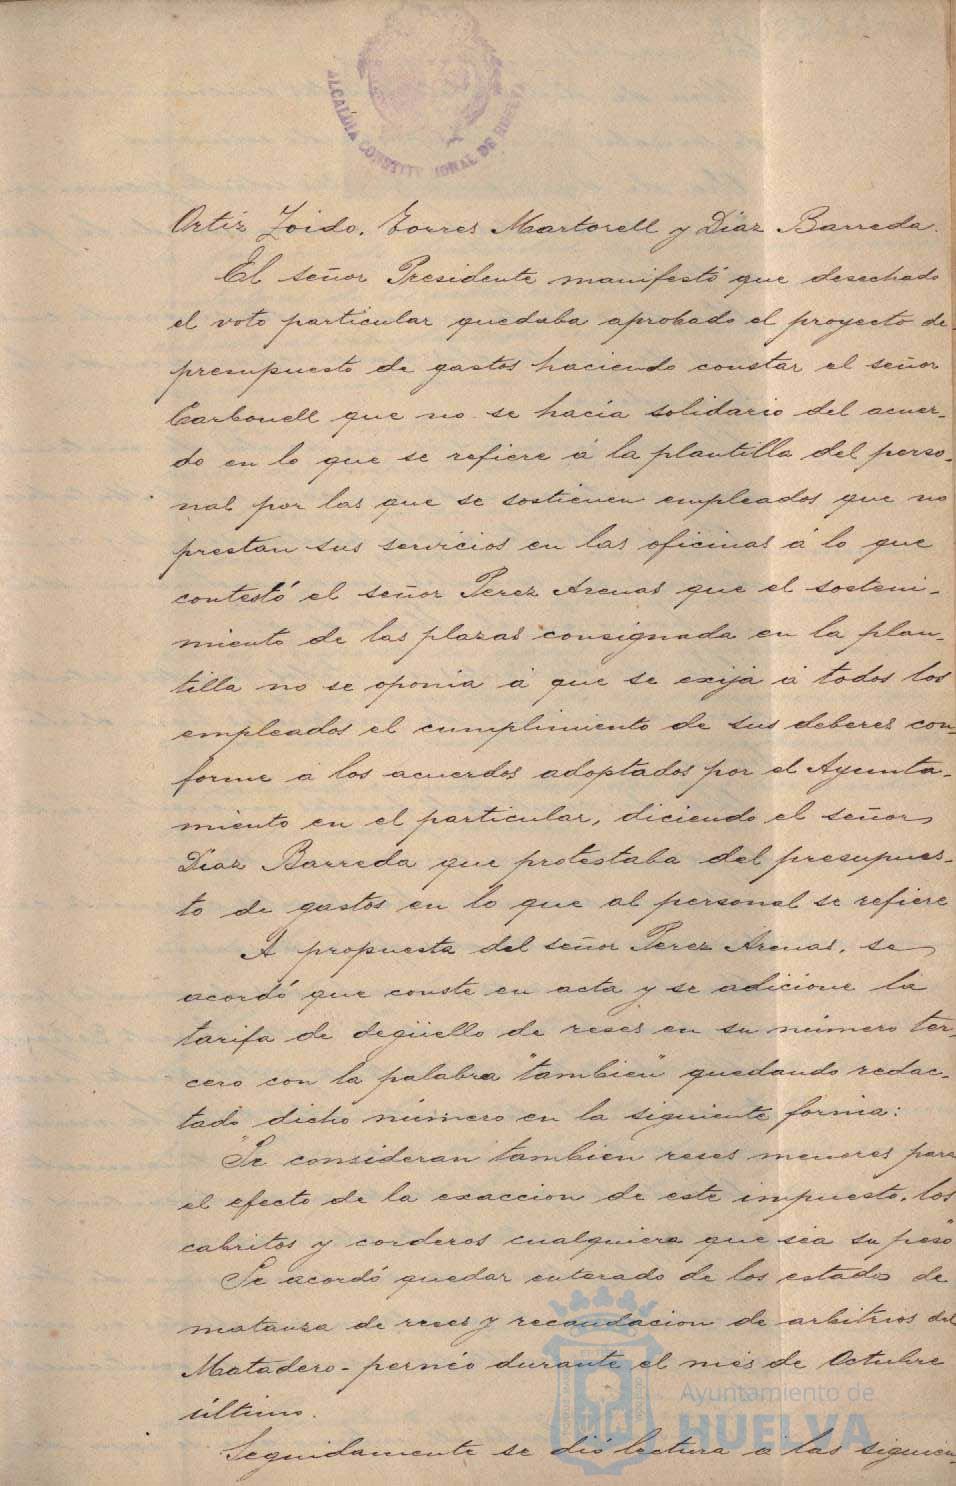 ALCALDIA CONSTITUCIONAL DE HUELVA
Ortiz Zoido. Torres Martorell y Diaz Barreda.
El señor Presidente manifestó que desechado
el voto particular quedaba aprobado el proyecto de
presupuesto de gastos haciendo constar el señor
Carbonell que no se hacia solidario del acuer-
do en lo que se refiere á la plantilla del perso-
nal por las que se sostienen empleados que no
prestan sus servicios en las oficinas á lo que
contestó el señor Perez Arenas que el sosteni-
miento de las plazas consignada en la plan-
tilla no se oponia á que se exija á todos los
empleados el cumplimiento de sus deberes con-
forme á los acuerdos adoptados por el Ayunta-
miento en el particular, diciendo el señor
Diaz Barreda que protestaba del presupues-
to de gastos en lo que al personal se refiere
A propuesta del señor Perez Arenas, se
acordó que conste en acta y se adicione la
tarifa de degüello de reses en su número ter-
cero con la palabra "tambien" quedando redac-
tado dicho número en la siguiente forma:
"Se consideran tambien reses menores para
el efecto de la exaccion de este impuesto, los
cabritos y corderos cualquiera que sea su peso"
Se acordó quedar enterado de los estados de
matanza de reses y recaudacion de arbitrios del
Matadero-pernéo durante el més de Octubre
último.
Seguidamente se dió lectura á las siguien-
Ayuntamiento de
HUELVA